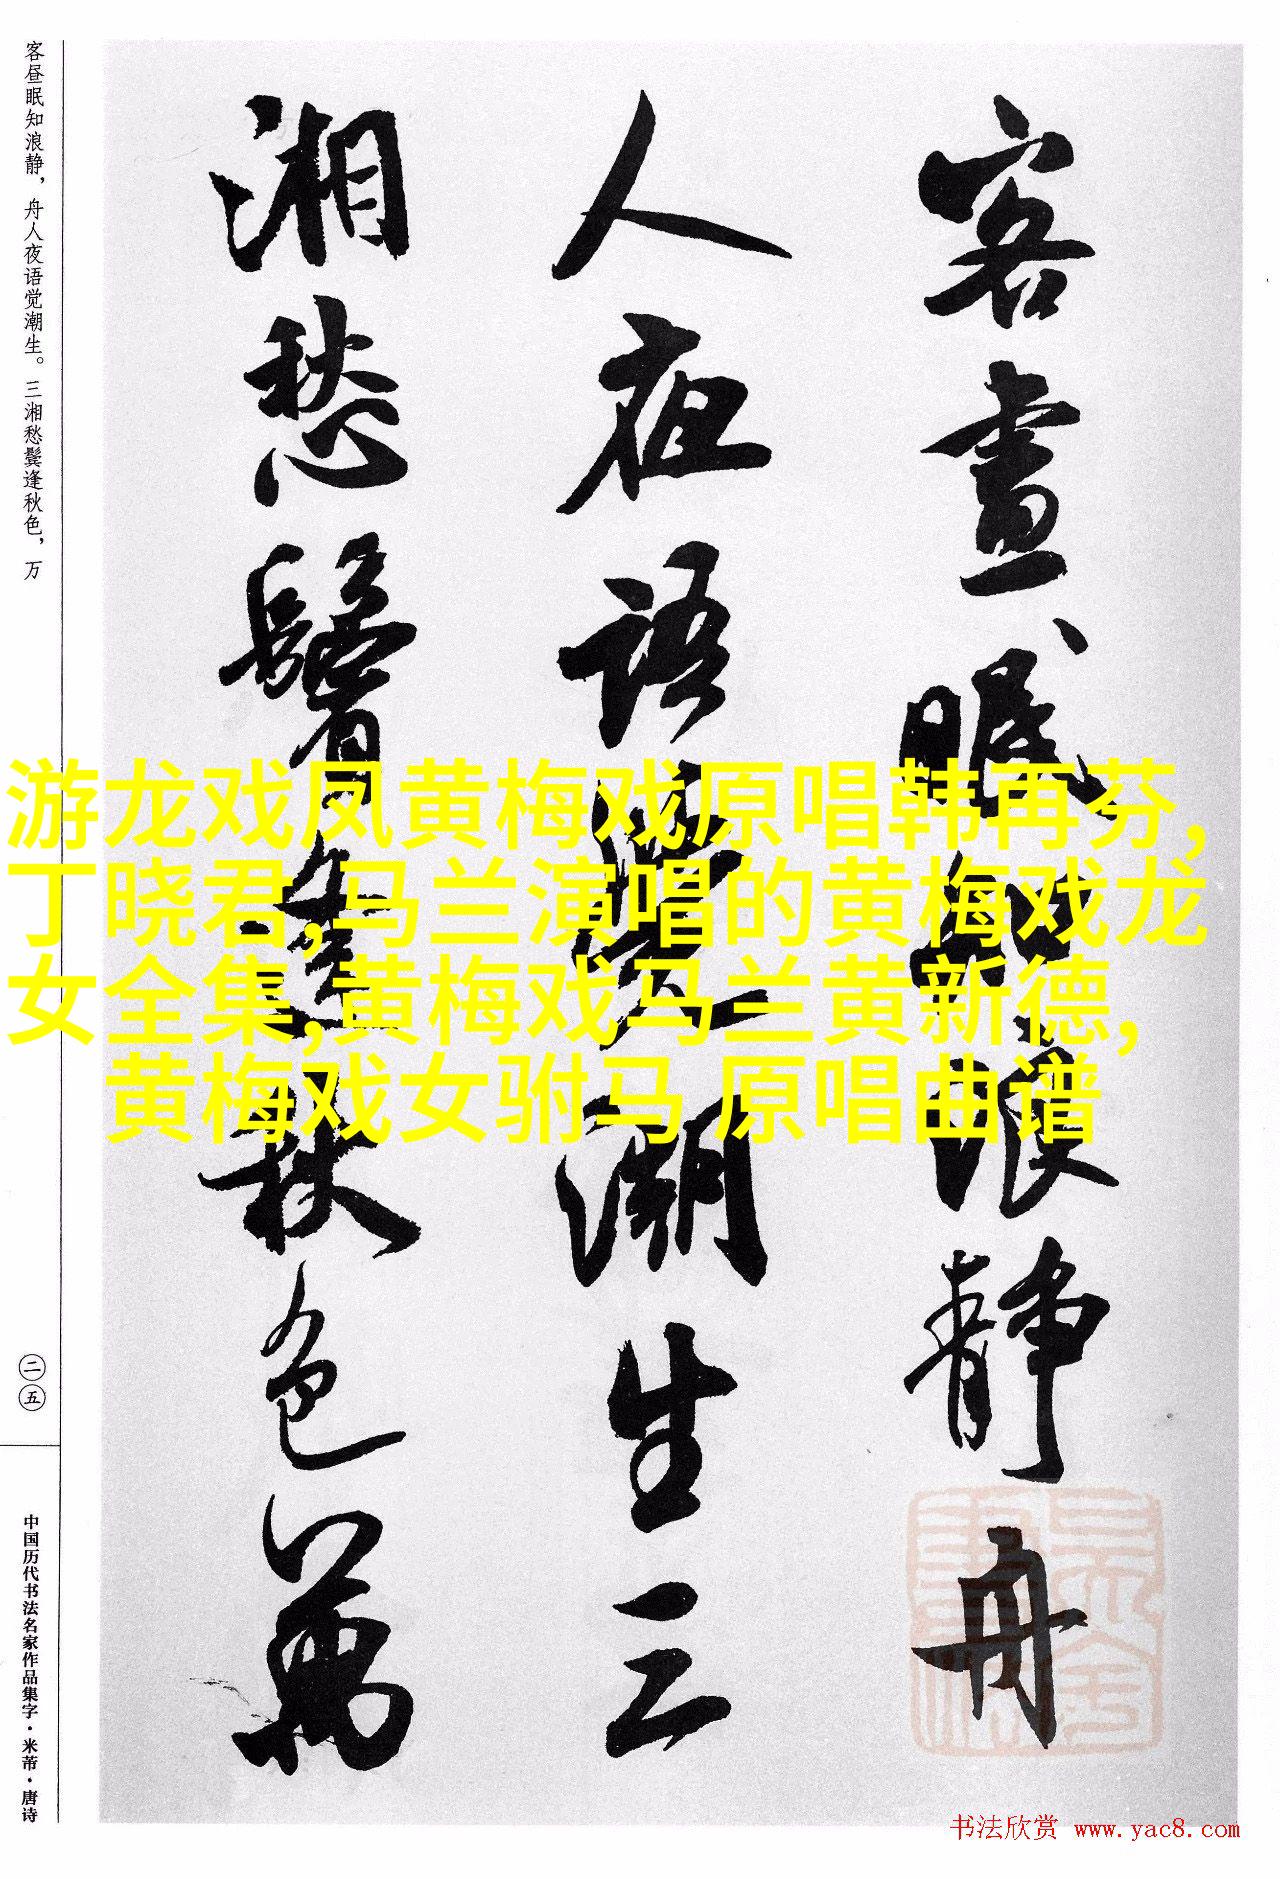 客昼眠知浪静，舟人夜语觉潮生。三湘愁鬓逢秋色，万
客晝眠知浪静舟
人夜语覺潮生三
湘愁鬓逢秋色萬
游龙戏凤黄梅戏原唱韩再芬,
丁晓君,马兰演唱的黄梅戏龙
女全集,黄梅戏马兰黄新德,
黄梅戏女驸马 原唱曲谱
二五
中国历代书法名家作品集字·米芾·唐诗
书法欣赏 www.yac8.com